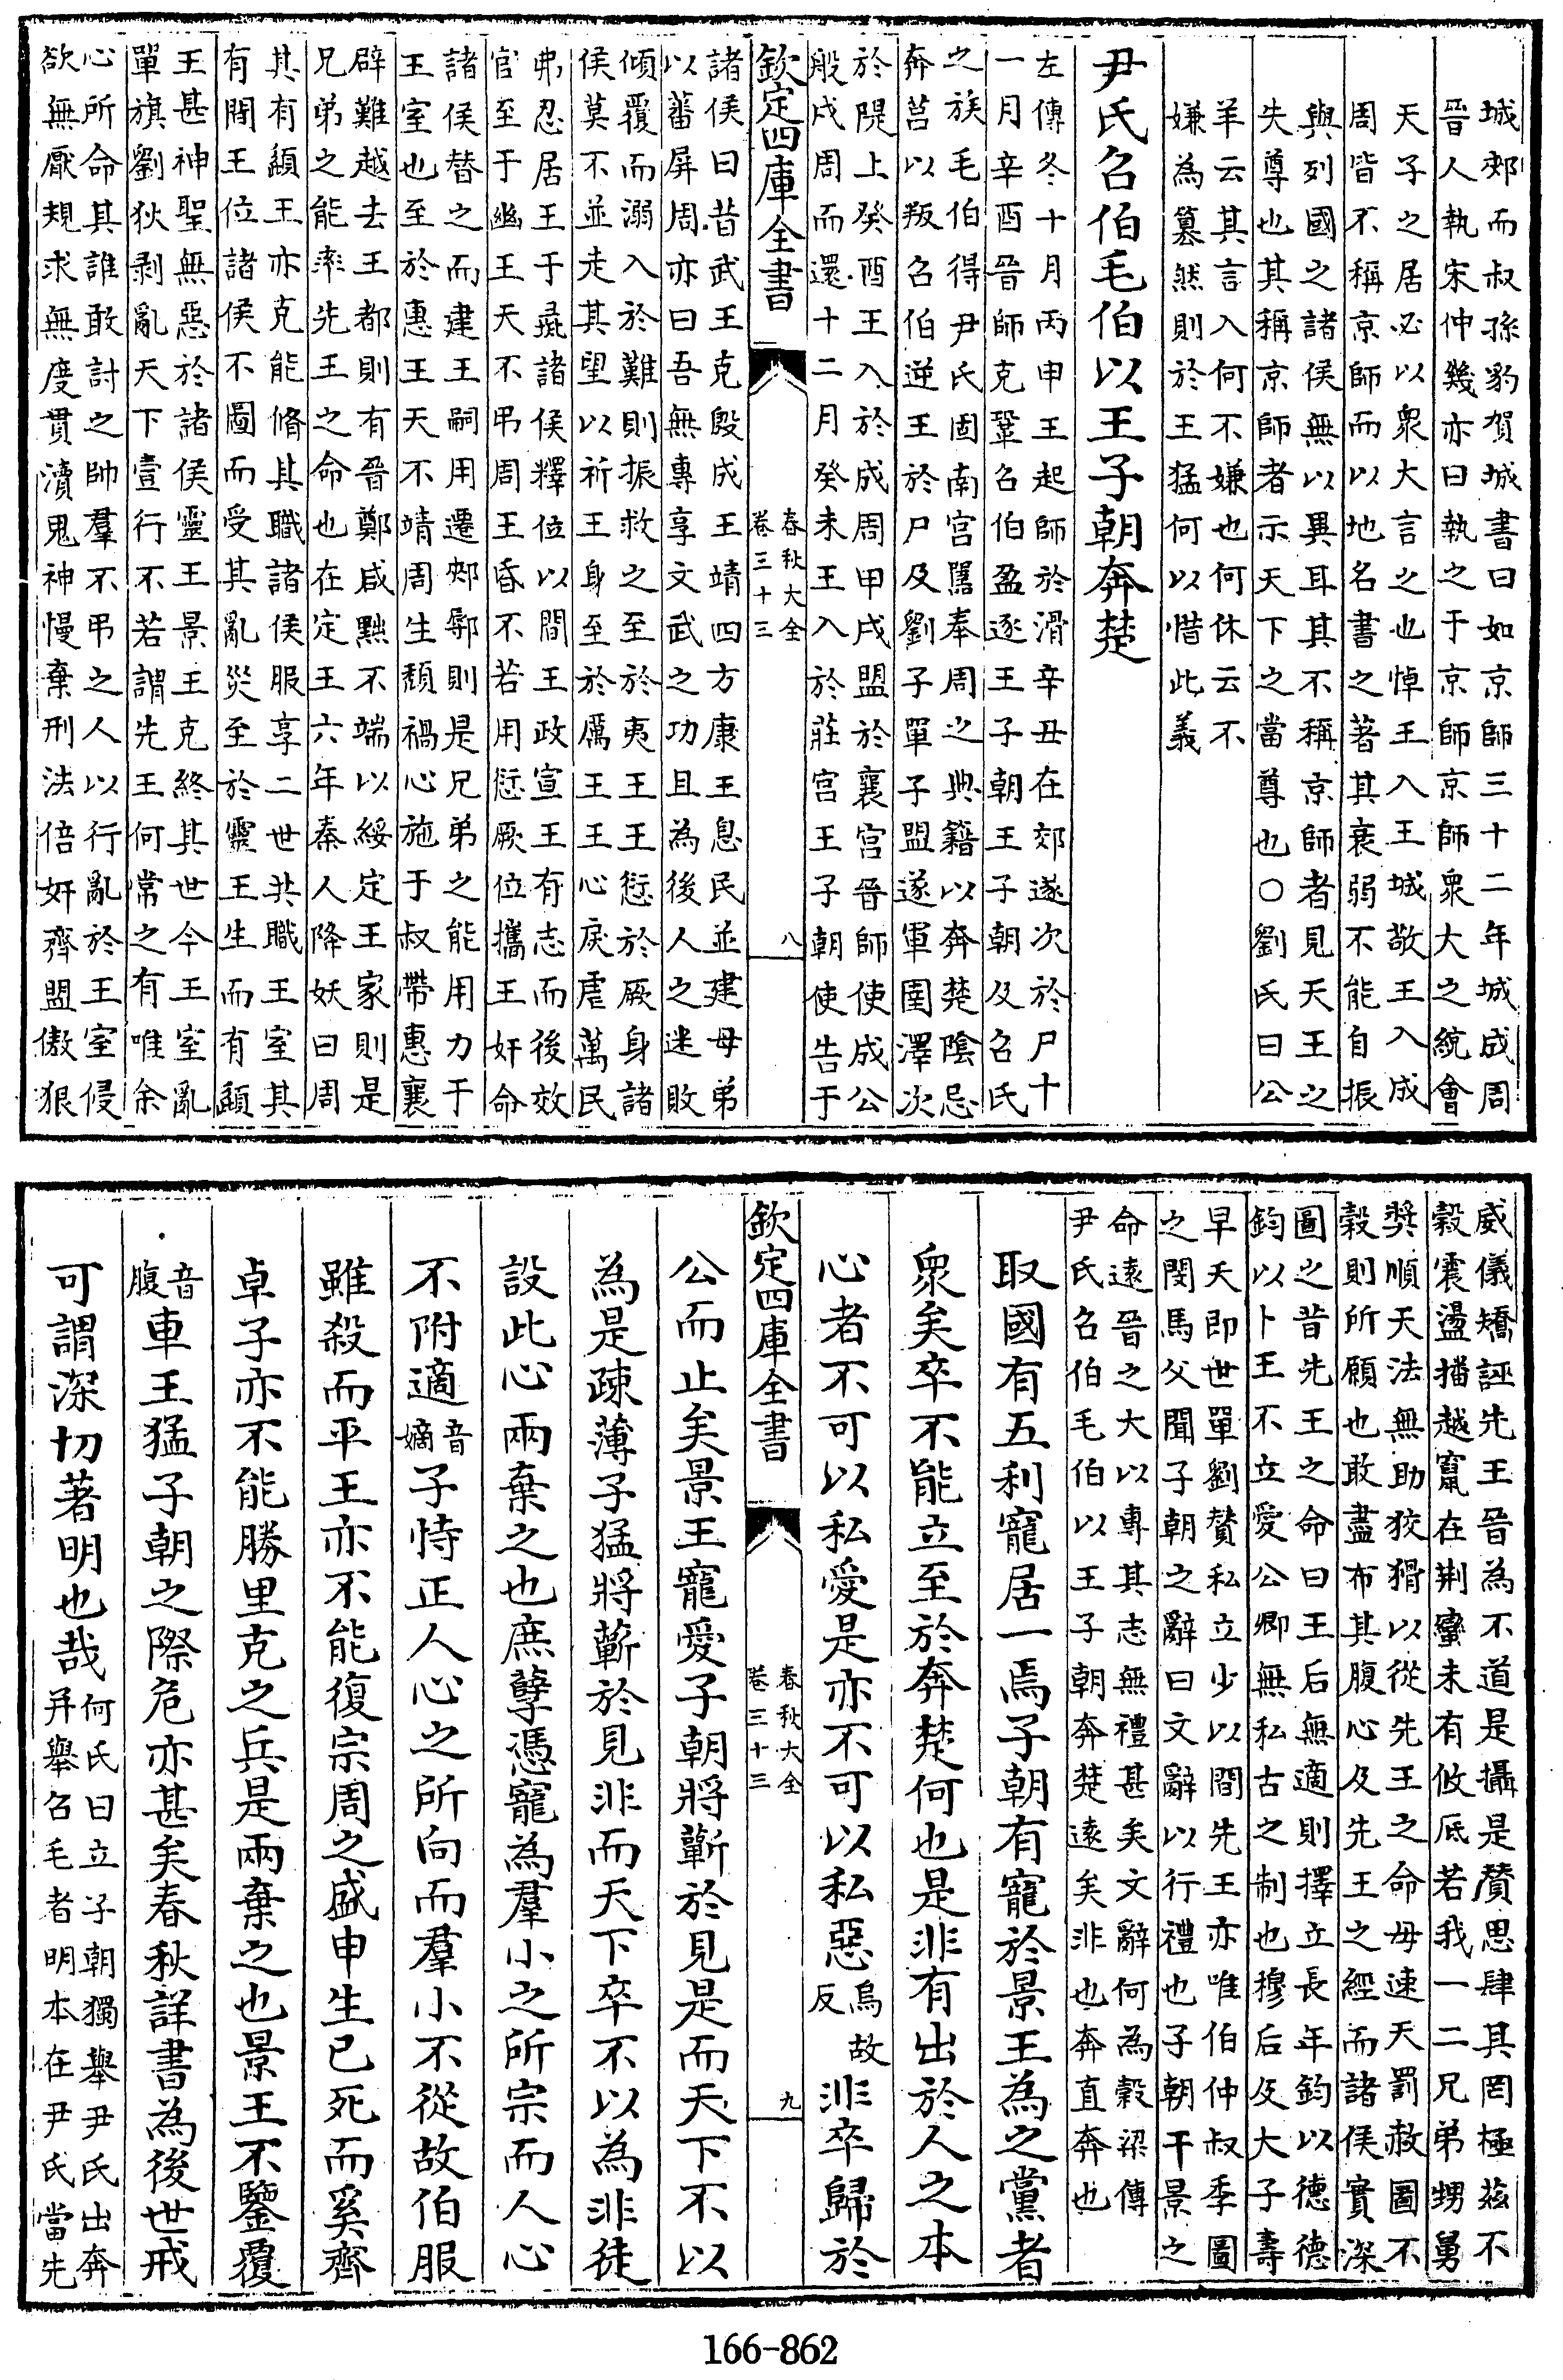 城郟而叔孫豹賀城書曰如京師三十二年城成周
晉人執宋仲幾亦曰執之于京師京師衆大之統會
天子之居必以衆大言之也悼王入王城敬王入成
周皆不稱京師而以地名書之著其衰弱不能自振
與列國之諸侯無以異耳其不稱京師者見天王之
失尊也其稱京師者示天下之當尊也○劉氏曰公
羊云其言入何不嫌也何休云不
嫌為篡然則於王猛何以惜此義
尹氏召伯毛伯以王子朝奔楚
左傳冬十月丙申王起師於滑辛丑在郊遂次於尸十
一月辛酉晉師克鞏召伯盈逐王子朝王子朝及召氏
之族毛伯得尹氏固南宮嚚奉周之典籍以奔楚陰忌
奔莒以叛召伯逆王於尸及劉子單子盟遂軍圉澤次
於隄上癸酉王入於成周甲戌盟於襄宮晉師使成公
般戍周而還十二月癸未王入於莊宮王子朝使告于
欽定四庫全書
春秋大全
卷三十三
八
諸侯曰昔武王克殷成王靖四方康王息民並建母弟
以蕃屏周亦曰吾無專享文武之功且為後人之迷敗
傾覆而溺入於難則振救之至於夷王王愆於厥身諸
侯莫不並走其望以祈王身至於厲王王心戾虐萬民
弗忍居王于彘諸侯釋位以間王政宣王有志而後效
官至于幽王天不弔周王昏不若用愆厥位攜王奸命
諸侯替之而建王嗣用遷郟鄏則是兄弟之能用力于
王室也至於惠王天不靖周生頹禍心施于叔帶惠襄
辟難越去王都則有晉鄭咸黜不端以綏定王家則是
兄弟之能率先王之命也在定王六年秦人降妖曰周
其有頿王亦克能脩其職諸侯服享二世共職王室其
有間王位諸侯不圖而受其亂災至於靈王生而有頿
王甚神聖無惡於諸侯靈王景王克終其世今王室亂
單旗劉狄剥亂天下壹行不若謂先王何常之有唯余
心所命其誰敢討之帥羣不弔之人以行亂於王室侵
欲無厭規求無度貫瀆鬼神慢棄刑法倍奸齊盟傲狠
威儀矯誣先王晉為不道是攝是贊思肆其罔極茲不
穀震盪播越竄在荆蠻未有攸厎若我一二兄弟甥舅
奬順天法無助狡猾以從先王之命毋速天罰赦圖不
穀則所願也敢盡布其腹心及先王之經而諸侯實深
圖之昔先王之命曰王后無適則擇立長年鈞以德德
鈞以卜王不立愛公卿無私古之制也穆后及大子壽
早夭即世單劉贊私立少以間先王亦唯伯仲叔季圖
之閔馬父聞子朝之辭曰文辭以行禮也子朝干景之
命遠晉之大以專其志無禮甚矣文辭何為穀梁傳
尹氏召伯毛伯以王子朝奔楚遠矣非也奔直奔也
取國有五利寵居一焉子朝有寵於景王為之黨者
衆矣卒不能立至於奔楚何也是非有出於人之本
心者不可以私愛是亦不可以私惡烏故反非卒歸於
欽定四庫全書
春秋大全
卷三十三
九
公而止矣景王寵愛子朝將蘄於見是而天下不以
為是疎薄子猛將蘄於見非而天下卒不以為非徒
設此心兩棄之也庶孽憑寵為羣小之所宗而人心
不附適音嫡子恃正人心之所向而羣小不從故伯服
雖殺而平王亦不能復宗周之盛申生已死而奚齊
卓子亦不能勝里克之兵是兩棄之也景王不鑒覆
音腹車王猛子朝之際危亦甚矣春秋詳書為後世戒
可謂深切著明也哉何氏曰立子朝獨舉尹氏出奔
并舉召毛者明本在尹氏當先
166-862